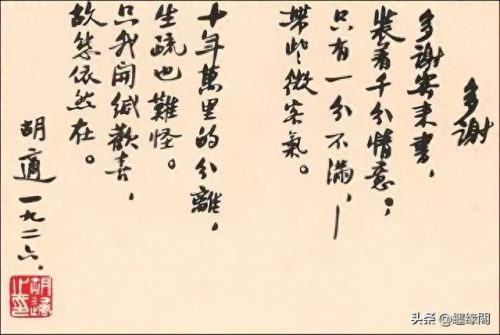 多謝
多謝寄來書，
裝着千分情意。
只有一分不滿，—
帶些微客氣。
十年萬里的分離，
生疏也難怪。
只我開緘歡喜，
故態依然在。
胡適 一九二六．
胡適之印
头条 @繼緣閣